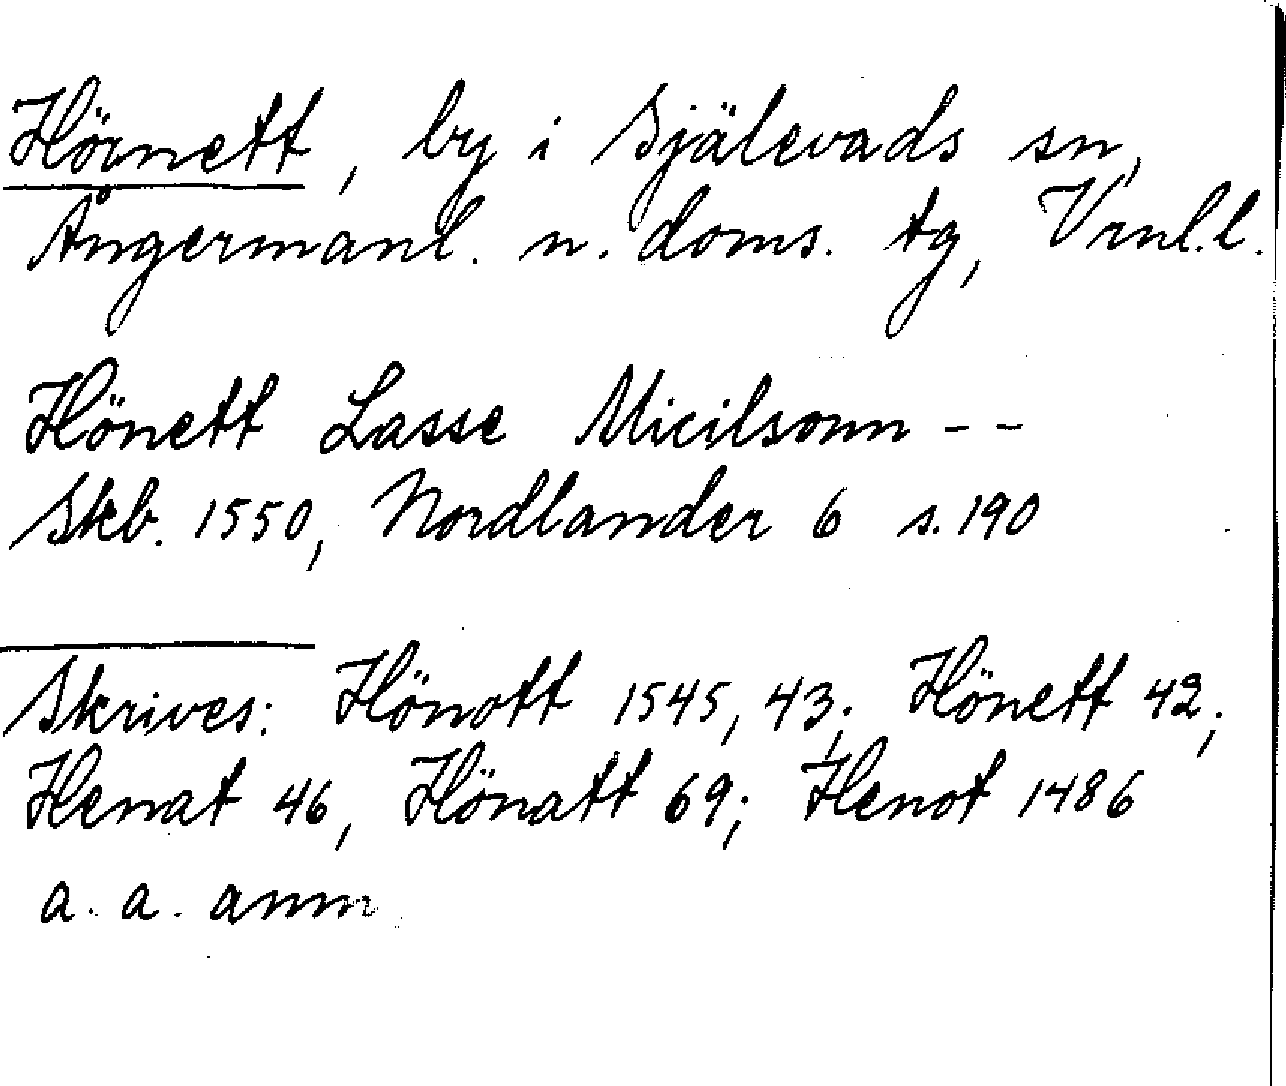 Hörnett, by i Själevads sn,
Ångermanl. n. doms. tg, Vrnl.l.
Hönett Lasse Micilsonn - -
Skb. 1550, Nordlander 6 s. 190
Skrives: Hönott 1545, 43; Hönett 42;
Henat 46, Hönatt 69; Henot 1486
a. a. anm